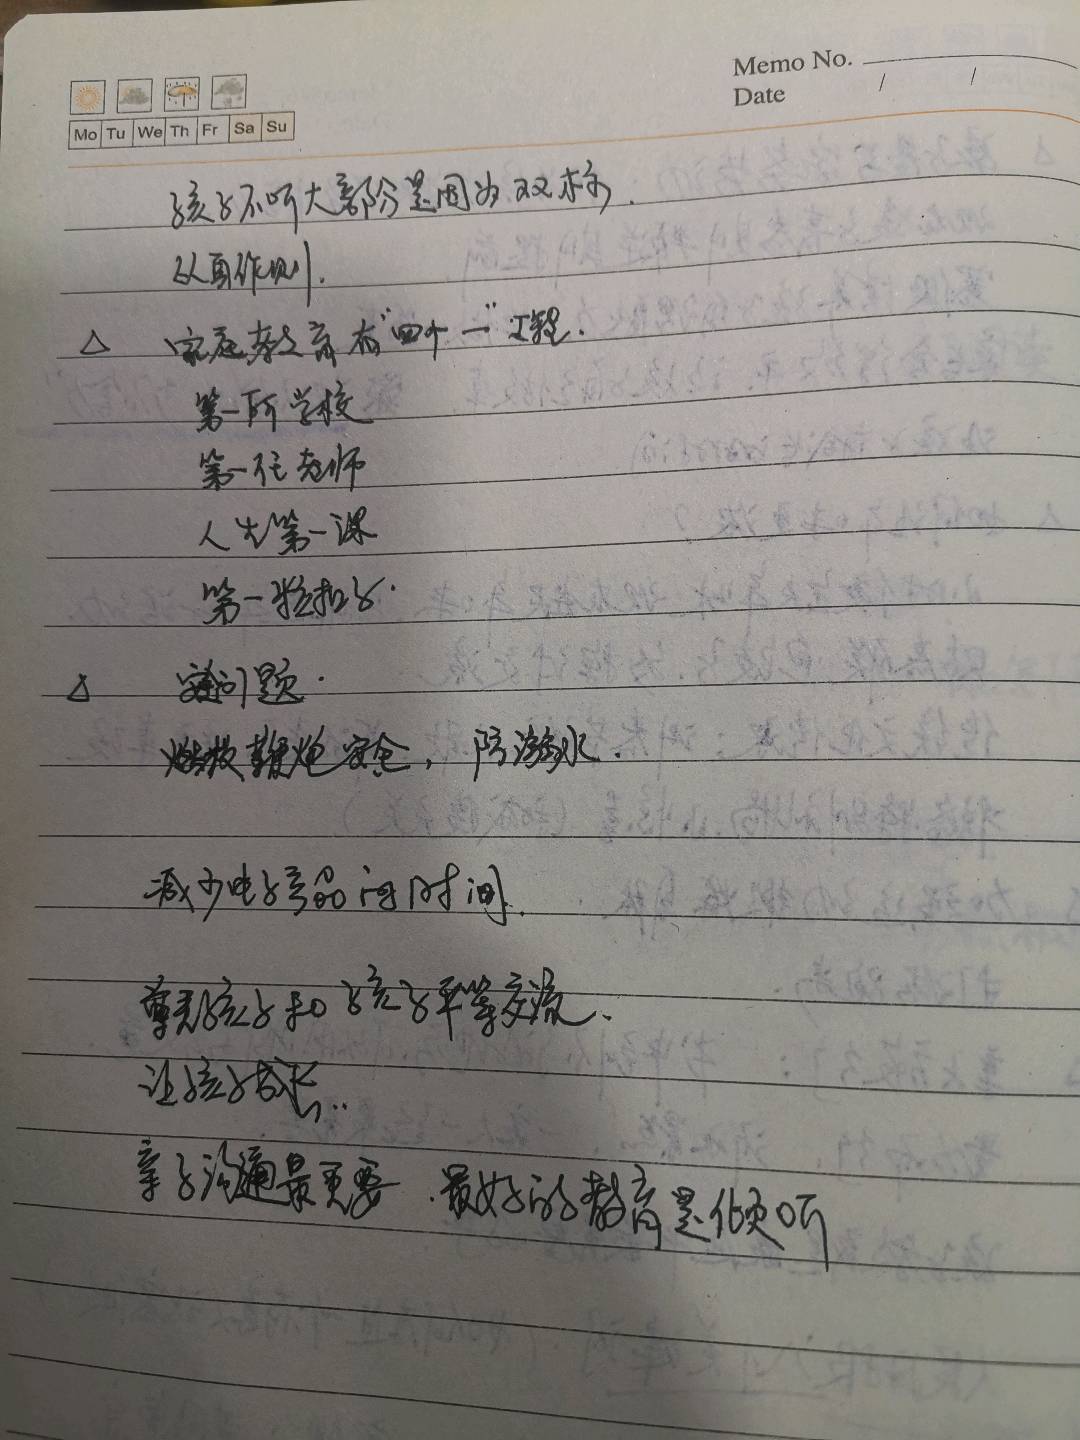 Memo No.
Date / /
Mo Tu We Th Fr Sa Su
孩子不听大部分是因为双标.
以身作则.
△ 家庭教育有"四个一"工程.
第一所学校
第一任老师
人生第一课
第一粒扣子.
△ 安全问题.
燃放鞭炮安全, 防溺水.
减少电子产品 时间.
尊重孩子和孩子平等交流.
让孩子成长..
亲子沟通最重要.最好的教育是倾听